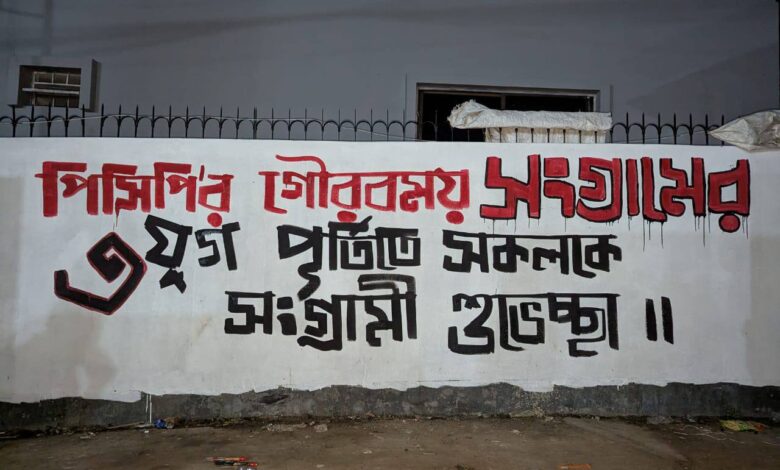 পিসিপি'র গৌরবময় সংগ্রামের
৩ যুগ পূর্তিতে সকলকে
সংগ্রামী শুভেচ্ছা ॥